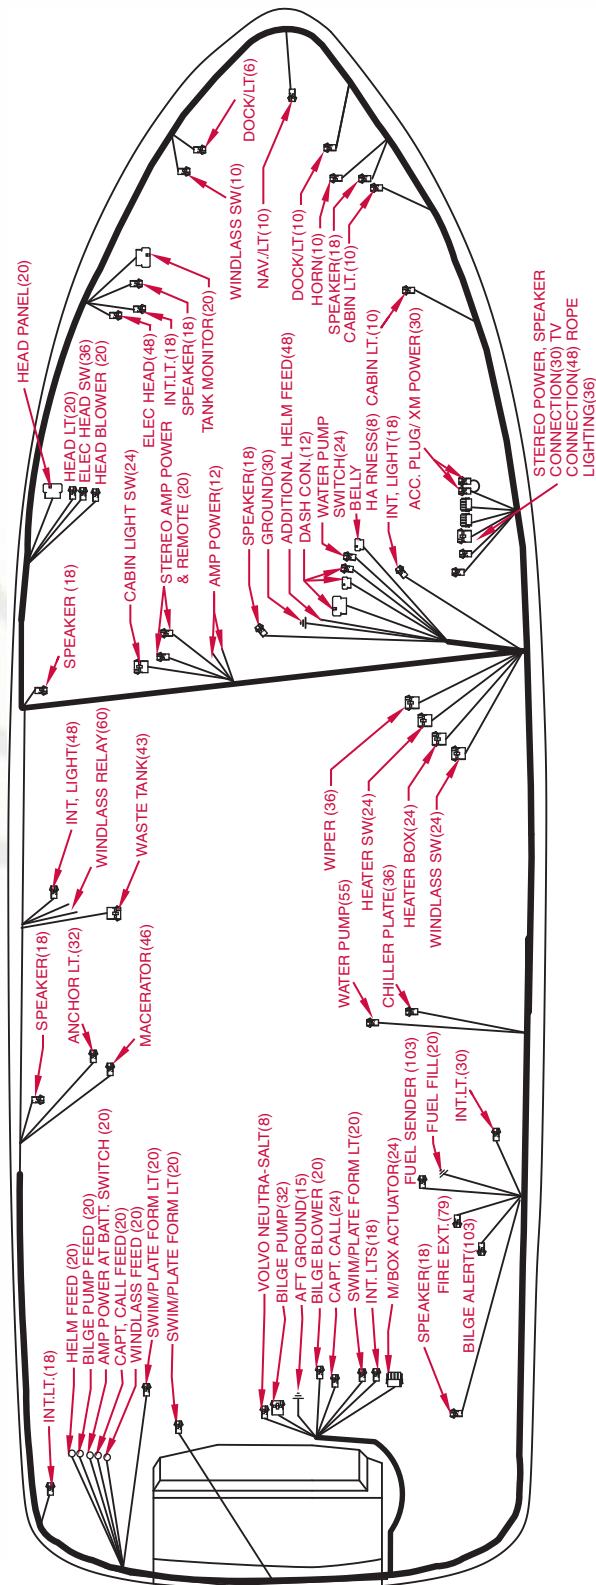 DOCK/LT(6)
WINDLASS SW(10)
NAV./LT(10)
DOCK/LT(10)
HORN(10)
SPEAKER(18)
CABIN LT.(10)
HEAD PANEL(20)
HEAD LT(20)
ELEC HEAD SW(36)
HEAD BLOWER (20)
ELEC HEAD(48)
INT.LT.(18)
SPEAKER(18)
TANK MONITOR(20)
CABIN LT.(10)
ACC. PLUG/ XM POWER(30)
STEREO POWER, SPEAKER
CONNECTION(30) TV
CONNECTION(48) ROPE
LIGHTING(36)
SPEAKER (18)
CABIN LIGHT SW(24)
STEREO AMP POWER
& REMOTE (20)
AMP POWER(12)
SPEAKER(18)
GROUND(30)
ADDITIONAL HELM FEED(48)
DASH CON.(12)
WATER PUMP
SWITCH(24)
BELLY
HA RNESS(8)
INT, LIGHT(18)
INT, LIGHT(48)
WINDLASS RELAY(60)
WASTE TANK(43)
WIPER (36)
HEATER SW(24)
HEATER BOX(24)
WINDLASS SW(24)
SPEAKER(18)
ANCHOR LT.(32)
MACERATOR(46)
WATER PUMP(55)
CHILLER PLATE(36)
INT.LT.(18)
HELM FEED (20)
BILGE PUMP FEED (20)
AMP POWER AT BATT. SWITCH (20)
CAPT, CALL FEED(20)
WINDLASS FEED (20)
SWIM/PLATE FORM LT(20)
SWIM/PLATE FORM LT(20)
VOLVO NEUTRA-SALT(8)
BILGE PUMP(32)
AFT GROUND(15)
BILGE BLOWER (20)
CAPT. CALL(24)
SWIM/PLATE FORM LT(20)
INT. LTS(18)
M/BOX ACTUATOR(24)
FUEL SENDER (103)
FUEL FILL(20)
INT.LT.(30)
SPEAKER(18)
FIRE EXT.(79)
BILGE ALERT(103)